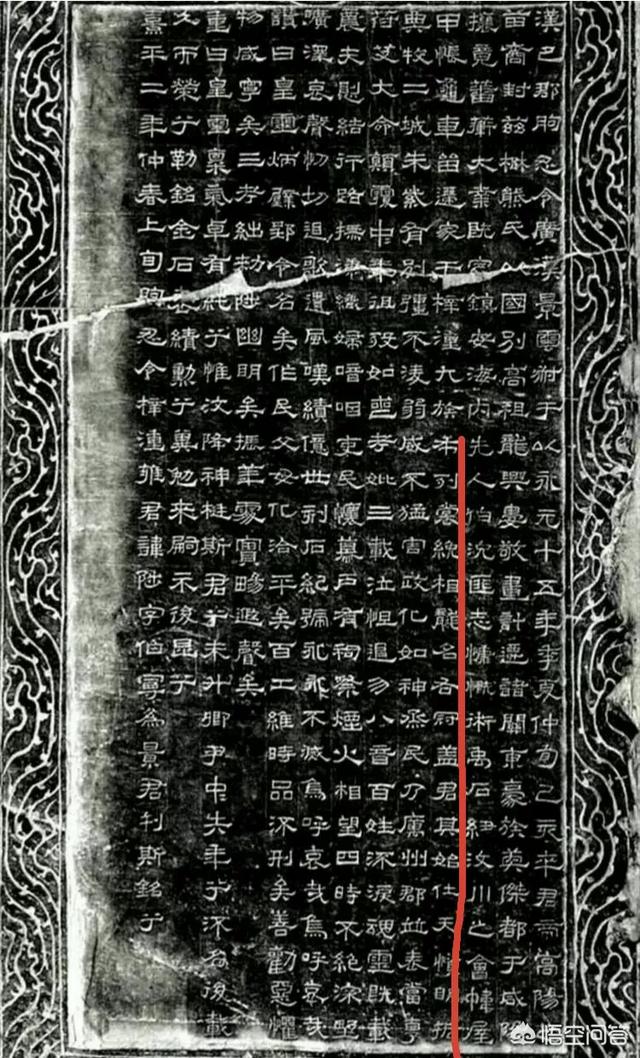 漢巴郡朐忍令廣漢景雲叔于以永元十五年季夏仲旬己亥卒君帝高陽
苗裔封茲楚熊氏以國別高祖龍興婁敬畫計遷諸關東豪族英傑都于咸陽
攘竟蕃衛大業既定鎮安海內先人伯沇匪志慷慨術禹石紐汶川之會幃屋
甲帳龜車留遰家于梓潼九族布列裳絻相襲名右冠蓋君其始仕天資明哲
典牧二城朱紫有別強不凌弱威不猛害政化如神烝民乃厲州郡並表當亨
符艾大命顛覆中年徂歿如喪考妣三載泣怛遏勿八音百姓流淚魂靈既載
農夫惻結行路撫涕織婦喑咽吏民懷慕戶有祠祭煙火相望四時不絕深野
曠澤哀聲忉切追歌遺風嘆績億世刻石紀號永永不滅烏呼哀哉烏呼哀哉
讚曰皇靈炳璧郢令名矣作民父母化洽平矣百工維時品流刑矣善勸惡懼
物咸寧矣三考絀勑陟幽明矣振華處實暘遐聲矣
重曰皇靈稟氣卓有純兮惟汶降神梃斯君兮未升卿尹中失年兮流名後載
久而榮兮勒銘金石表績勳兮冀勉來嗣示後昆兮
熹平二年仲春上旬朐忍令梓潼雍君諱陟字伯寧為景君刊斯銘兮
悟空问答